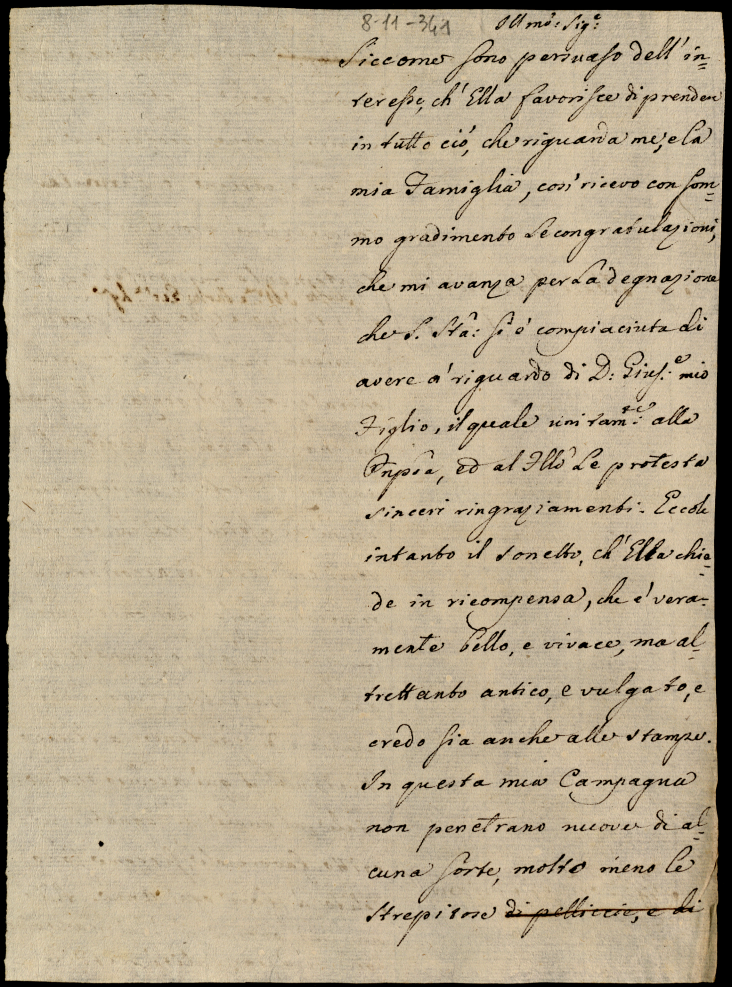 8-11-341
Ill.mo: Sig.e:
Siccome sono persuaso dell' in=
teresse, ch' Ella favorisce di prendere
in tutto ciò, che riguarda me, e la
mia Famiglia, così ricevo con som=
mo gradimento le congratulazioni,
che mi avanza per la degnazione
che S. Stâ: si è compiaciuta di
avere a' riguardo di D: Gius.e mio
Figlio, il quale unitam.te: alla
ed al Le protesta
sinceri ringraziamenti. Eccole
intanto il sonetto, ch' Ella chie=
de in ricompensa, che è vera=
mente bello, e vivace, ma al=
trettanto antico, e vulgato, e
credo sia anche alle stampe.
In questa mia Campagna
non penetrano nuove di al=
cuna sorte, molto meno le
strepitose di pelliccie, e di